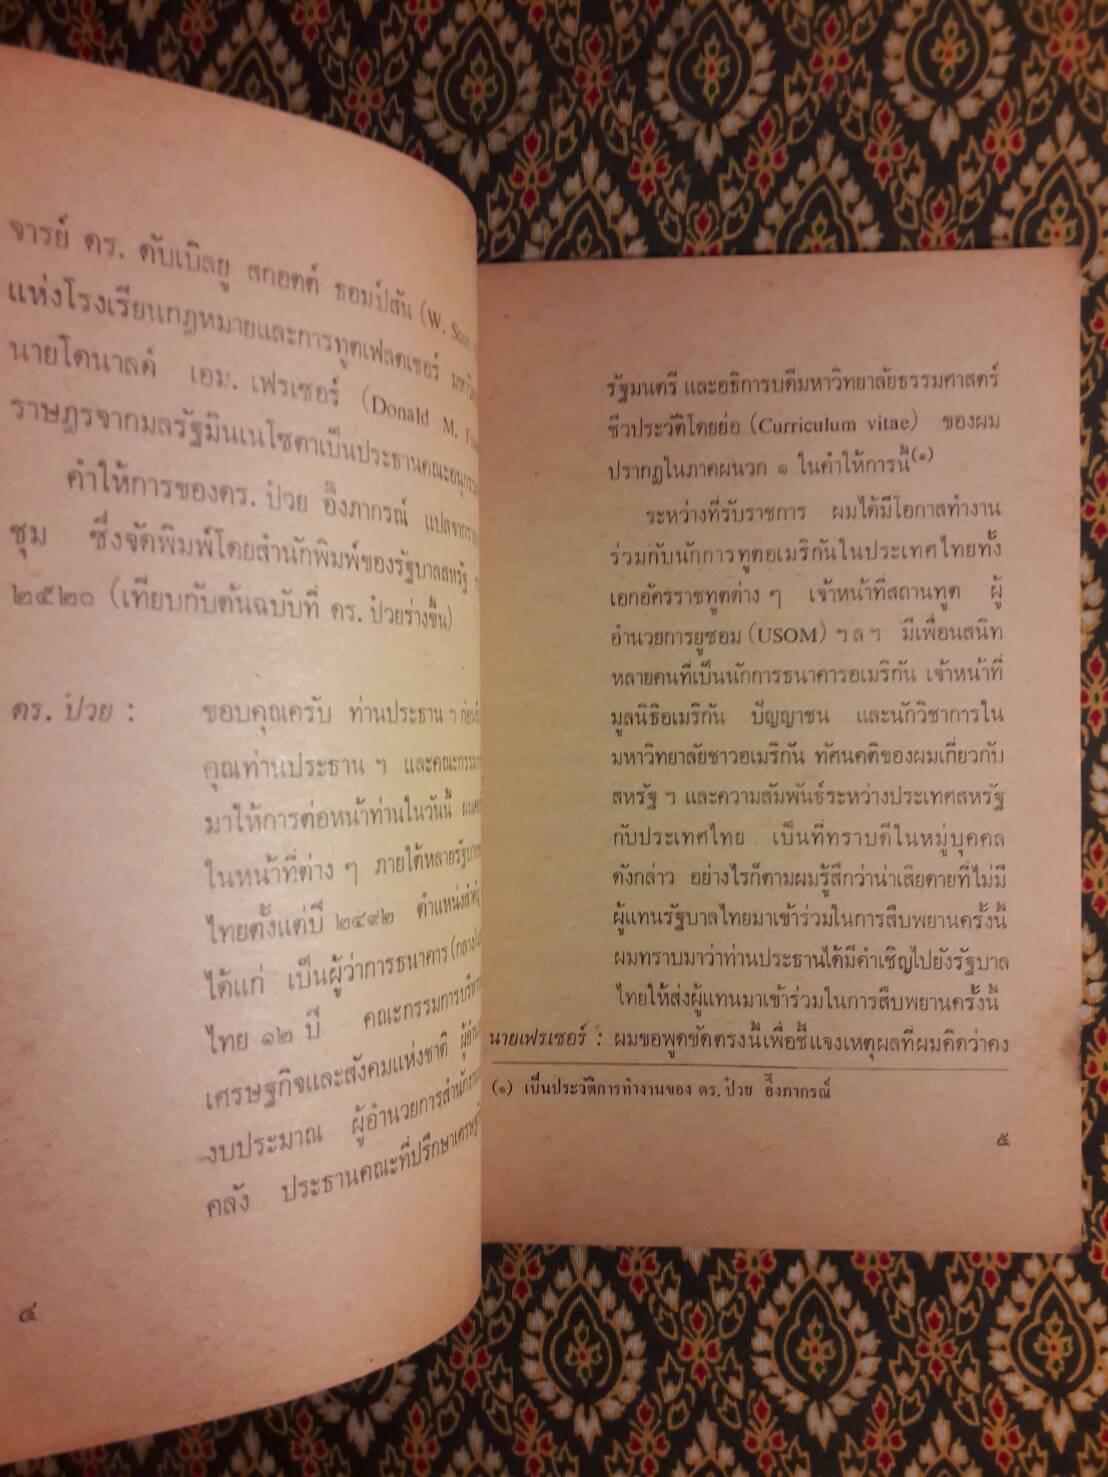 จารย์ ดร. ดับเบิลยู สกอตต์ ธอมป์สัน (W. Scott
แห่งโรงเรียนกฎหมายและการทูตเฟลตเชอร์
นายโดนาลด์ เอม. เฟรเซอร์ (Donald M.
ราษฎรจากมลรัฐมินเนโซตาเป็นประธานคณะอนุกรรม
คำให้การของดร. ป๋วย อึ๊งภากรณ์
ชุม ซึ่งจัดพิมพ์โดยสำนักพิมพ์ของรัฐบาลสหรัฐ
๒๕๒๐ (เทียบกับต้นฉบับที่ ดร. ป๋วยร่างขึ้น)
ดร. ป๋วย : ขอบคุณครับ ท่านประธาน ฯ
คุณท่านประธาน ฯ และคณะกรรม
มาให้การต่อหน้าท่านในวันนี้
ในหน้าที่ต่าง ๆ ภายใต้หลายรัฐบาล
ไทยตั้งแต่ปี ๒๔๙๒ ตำแหน่งสำคัญ
ได้แก่ เป็นผู้ว่าการธนาคาร (กลาง)
ไทย ๑๒ ปี คณะกรรมการบริหาร
เศรษฐกิจและสังคมแห่งชาติ
งบประมาณ ผู้อำนวยการสำนักงาน
คลัง ประธานคณะที่ปรึกษาเศรษฐ
๔
รัฐมนตรี และอธิการบดีมหาวิทยาลัยธรรมศาสตร์
ชีวประวัติโดยย่อ (Curriculum vitae) ของผม
ปรากฏในภาคผนวก ๑ ในคำให้การนี้(๑)
ระหว่างที่รับราชการ ผมได้มีโอกาสทำงาน
ร่วมกับนักการทูตอเมริกันในประเทศไทยทั้ง
เอกอัครราชทูตต่าง ๆ เจ้าหน้าที่สถานทูต ผู้
อำนวยการยูซอม (USOM) ฯ ล ฯ มีเพื่อนสนิท
หลายคนที่เป็นนักการธนาคารอเมริกัน เจ้าหน้าที่
มูลนิธิอเมริกัน ปัญญาชน และนักวิชาการใน
มหาวิทยาลัยชาวอเมริกัน ทัศนคติของผมเกี่ยวกับ
สหรัฐ ฯ และความสัมพันธ์ระหว่างประเทศสหรัฐ
กับประเทศไทย เป็นที่ทราบดีในหมู่บุคคล
ดังกล่าว อย่างไรก็ตามผมรู้สึกว่าน่าเสียดายที่ไม่มี
ผู้แทนรัฐบาลไทยมาเข้าร่วมในการสืบพยานครั้งนี้
ผมทราบมาว่าท่านประธานได้มีคำเชิญไปยังรัฐบาล
ไทยให้ส่งผู้แทนมาเข้าร่วมในการสืบพยานครั้งนี้
นายเฟรเซอร์ : ผมขอพูดขัดตรงนี้เพื่อชี้แจงเหตุผลที่ผมคิดว่าคง
(๑) เป็นประวัติการทำงานของ ดร. ป๋วย อึ๊งภากรณ์
๕